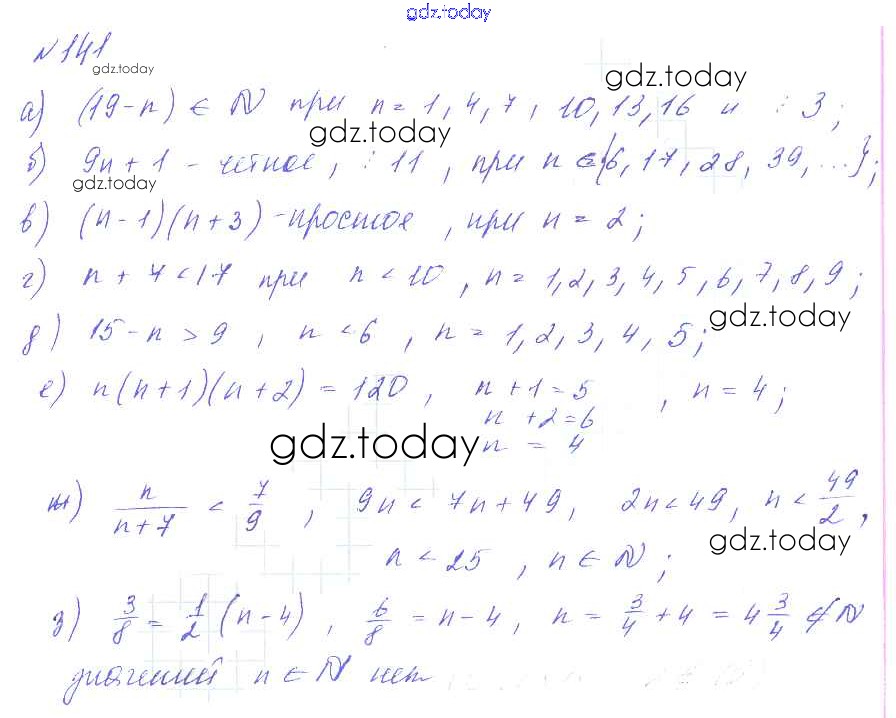 gdz.today
№141
gdz.today
gdz.today
а) (19-n) ∈ N при n = 1, 4, 7, 10, 13, 16 и ⋮ 3;
gdz.today
б) 9n + 1 - четное, ⋮ 11, при n ∈ {6, 17, 28, 39, ...};
gdz.today
в) (n-1)(n+3) - простое, при n = 2;
г) n + 7 < 17 при n < 10, n = 1, 2, 3, 4, 5, 6, 7, 8, 9;
gdz.today
д) 15 - n > 9, n < 6, n = 1, 2, 3, 4, 5;
е) n(n+1)(n+2) = 120, n + 1 = 5, n = 4;
n + 2 = 6
n = 4
gdz.today
ж) n/(n+7) < 7/9, 9n < 7n + 49, 2n < 49, n < 49/2,
gdz.today
n < 25, n ∈ N;
з) 3/8 = 1/2 (n-4), 6/8 = n - 4, n = 3/4 + 4 = 4 3/4 ∉ N
значений n ∈ N нет